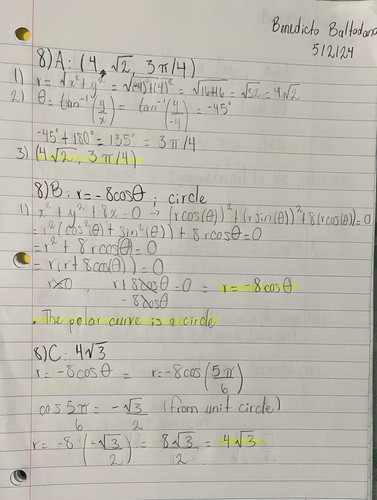 Benedicto Baltodano
5/2/24
8)A: (4,√2, 3π/4)
1) r = √x²+y² = √(-4)²+(4)² = √16+16 = √32 = 4√2
2) θ = tan⁻¹(y/x) = tan⁻¹(4/-4) = -45°
-45° + 180° = 135° = 3π/4
3) (4√2, 3π/4)
8)B: r = -8cosθ ; circle
1) x² + y² + 8x = 0 → (rcos(θ))² + (rsin(θ))² + 8(rcos(θ)) = 0
= r²(cos²(θ) + sin²(θ)) + 8rcosθ = 0
= r² + 8rcosθ = 0
= r(r + 8cos(θ)) = 0
r=0 r + 8cosθ = 0 = r = -8cosθ
-8cosθ
. The polar curve is a circle
8)C: 4√3
r = -8cosθ = r = -8cos(5π/6)
cos 5π/6 = -√3/2 (from unit circle)
r = -8(-√3/2) = 8√3/2 = 4√3